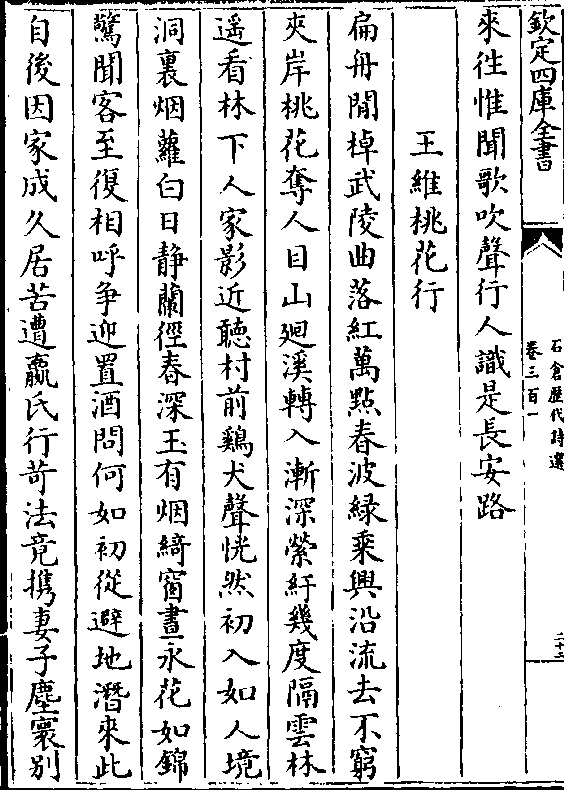 欽定四庫全書
石倉歷代詩選
卷三百一
二十三
來徃惟聞歌吹聲行人識是長安路
王維桃花行
扁舟閒棹武陵曲落紅萬點春波綠乘興沿流去不窮
夾岸桃花奪人目山廻溪轉入漸深縈紆幾度隔雲林
遥看林下人家影近聽村前鷄犬聲恍然初入如人境
洞裏烟蘿白日静蘭徑春深玉有烟綺窗晝永花如錦
驚聞客至復相呼争迎置酒問何如初從避地潛來此
自後因家成久居苦遭嬴氏行苛法竟携妻子塵寰别